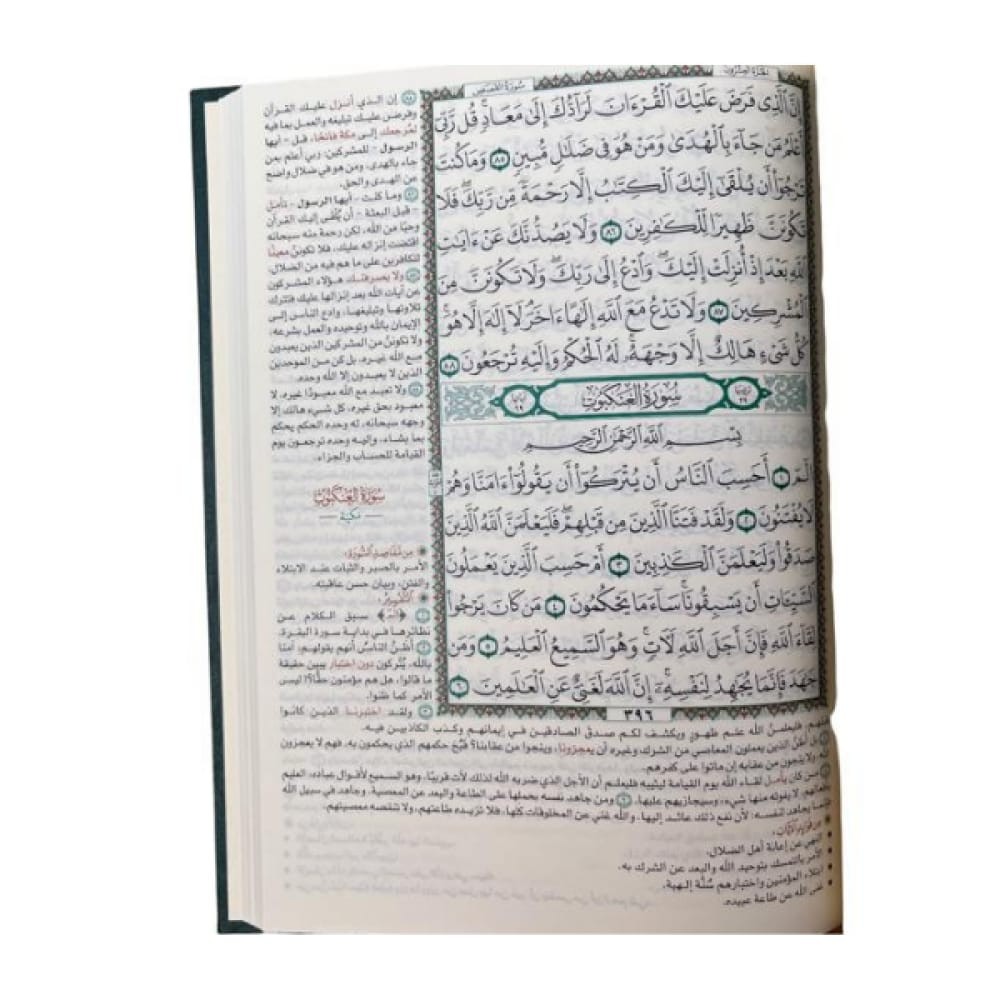 سُورَةُ القَصَصِ
الجُزْءُ العِشْرُونَ
إِنَّ ٱلَّذِى فَرَضَ عَلَيْكَ ٱلْقُرْءَانَ لَرَآدُّكَ إِلَىٰ مَعَادٍۚ قُل رَّبِّىٓ
أَعْلَمُ مَن جَآءَ بِٱلْهُدَىٰ وَمَنْ هُوَ فِى ضَلَٰلٍ مُّبِينٍ ٨٥ وَمَا كُنتَ
تَرْجُوٓا۟ أَن يُلْقَىٰٓ إِلَيْكَ ٱلْكِتَٰبُ إِلَّا رَحْمَةً مِّن رَّبِّكَۖ فَلَا
تَكُونَنَّ ظَهِيرًا لِّلْكَٰفِرِينَ ٨٦ وَلَا يَصُدُّنَّكَ عَنْ ءَايَٰتِ
ٱللَّهِ بَعْدَ إِذْ أُنزِلَتْ إِلَيْكَۖ وَٱدْعُ إِلَىٰ رَبِّكَۖ وَلَا تَكُونَنَّ مِنَ
ٱلْمُشْرِكِينَ ٨٧ وَلَا تَدْعُ مَعَ ٱللَّهِ إِلَٰهًا ءَاخَرَۘ لَآ إِلَٰهَ إِلَّا هُوَۚ
كُلُّ شَىْءٍ هَالِكٌ إِلَّا وَجْهَهُۥۚ لَهُ ٱلْحُكْمُ وَإِلَيْهِ تُرْجَعُونَ ٨٨
سُورَةُ العَنكَبُوتِ
بِسْمِ ٱللَّهِ ٱلرَّحْمَٰنِ ٱلرَّحِيمِ
الٓمٓ ١ أَحَسِبَ ٱلنَّاسُ أَن يُتْرَكُوٓا۟ أَن يَقُولُوٓا۟ ءَامَنَّا وَهُمْ
لَا يُفْتَنُونَ ٢ وَلَقَدْ فَتَنَّا ٱلَّذِينَ مِن قَبْلِهِمْۖ فَلَيَعْلَمَنَّ ٱللَّهُ ٱلَّذِينَ
صَدَقُوا۟ وَلَيَعْلَمَنَّ ٱلْكَٰذِبِينَ ٣ أَمْ حَسِبَ ٱلَّذِينَ يَعْمَلُونَ
ٱلسَّيِّـَٔاتِ أَن يَسْبِقُونَاۚ سَآءَ مَا يَحْكُمُونَ ٤ مَن كَانَ يَرْجُوا۟
لِقَآءَ ٱللَّهِ فَإِنَّ أَجَلَ ٱللَّهِ لَـَٔاتٍۚ وَهُوَ ٱلسَّمِيعُ ٱلْعَلِيمُ ٥ وَمَن
جَٰهَدَ فَإِنَّمَا يُجَٰهِدُ لِنَفْسِهِۦٓۚ إِنَّ ٱللَّهَ لَغَنِىٌّ عَنِ ٱلْعَٰلَمِينَ ٦
٣٩٦
٨٥ إن الذي أنزل عليك القرآن
وفرض عليك تبليغه والعمل بما فيه
لمرجعك إلى مكة فاتحًا، قل - أيها
الرسول - للمشركين: ربي أعلم بمن
جاء بالهدى، ومن هو في ضلال واضح
عن الهدى والحق.
٨٦ وما كنت - أيها الرسول - تأمل
- قبل البعثة - أن يُلقى إليك القرآن
وحيًا من الله، لكن رحمة منه سبحانه
اقتضت إنزاله عليك، فلا تكونن معينًا
للكافرين على ما هم فيه من الضلال.
٨٧ ولا يصرفنك هؤلاء المشركون
عن آيات الله بعد إنزالها عليك فتترك
تلاوتها وتبليغها، وادع الناس إلى
الإيمان بالله وتوحيده والعمل بشرعه،
ولا تكونن من المشركين الذين يعبدون
مع الله غيره، بل كن من الموحدين
الذين لا يعبدون إلا الله وحده.
٨٨ ولا تعبد مع الله معبودًا غيره، لا
معبود بحق غيره، كل شيء هالك إلا
وجهه سبحانه، له وحده الحكم يحكم
بما يشاء، وإليه وحده ترجعون يوم
القيامة للحساب والجزاء.
سُورَةُ العَنكَبُوتِ
مكية
مِن مَّقَاصِدِ السُّورَةِ:
الأمر بالصبر والثبات عند الابتلاء
والفتن، وبيان حسن عاقبته.
التَّفْسِيرُ:
١ ﴿الٓمٓ﴾ سبق الكلام عن
نظائرها في بداية سورة البقرة.
٢ أظن الناس أنهم بقولهم: آمنا
بالله، يُتركون دون اختبار يبين حقيقة
ما قالوا، هل هم مؤمنون حقًّا؟! ليس
الأمر كما ظنوا.
٣ ولقد اختبرنا الذين كانوا
قبلهم، فليعلمنّ الله علم ظهور ويكشف لكم صدق الصادقين في إيمانهم وكذب الكاذبين فيه.
٤ بل أظن الذين يعملون المعاصي من الشرك وغيره أن يعجزونا، وينجوا من عقابنا؟ قَبُح حكمهم الذي يحكمون به، فهم لا يعجزون
الله، ولا ينجون من عقابه إن ماتوا على كفرهم.
٥ من كان يأمل لقاء الله يوم القيامة ليثيبه فليعلم أن الأجل الذي ضربه الله لذلك لآت قريبًا، وهو السميع لأقوال عباده، العليم
بأفعالهم، لا يفوته منها شيء، وسيجازيهم عليها. ٦ ومن جاهد نفسه بحملها على الطاعة والبعد عن المعصية، وجاهد في سبيل الله
فإنما يجاهد لنفسه؛ لأن نفع ذلك عائد إليها، والله غني عن المخلوقات كلها، فلا تزيده طاعتهم، ولا تنقصه معصيتهم.
مِن فَوَائِدِ الآيَاتِ:
النهي عن إعانة أهل الضلال.
الأمر بالتمسك بتوحيد الله والبعد عن الشرك به.
ابتلاء المؤمنين واختبارهم سُنَّة إلهية.
غنى الله عن طاعة عبيده.